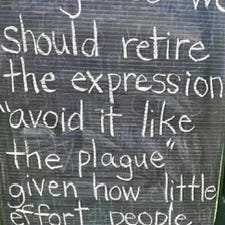 should retire
the expression
"avoid it like
the plague"
given how little
effort people